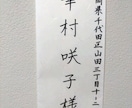 県千代田正山田三丁目十-二
幸村咲子様